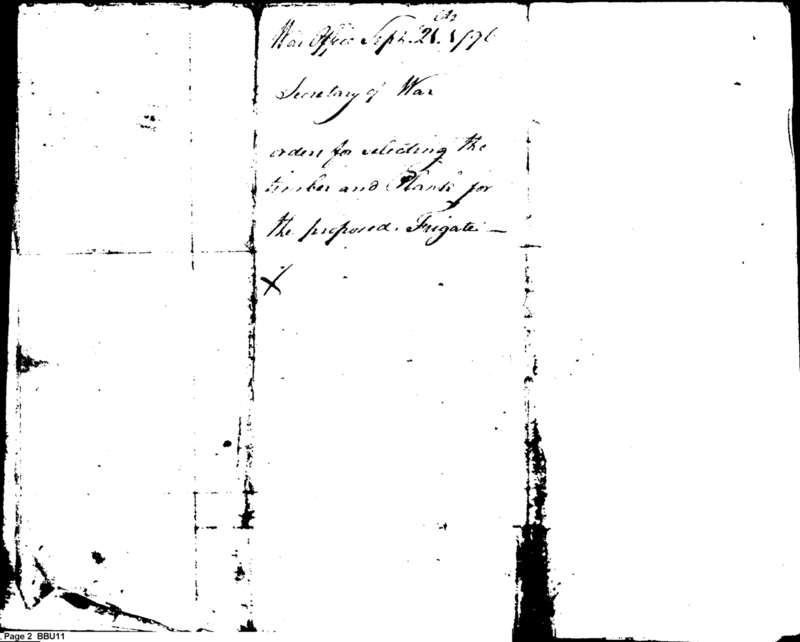 War Office Sept. 21st 1796
Secretary of War
orders for selecting the
timber and Plank for
the proposed Frigate —
X
Page 2 BBU11